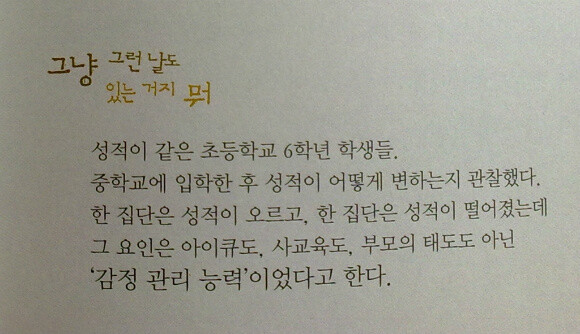 그냥 그런 날도
있는 거지 뭐
성적이 같은 초등학교 6학년 학생들.
중학교에 입학한 후 성적이 어떻게 변하는지 관찰했다.
한 집단은 성적이 오르고, 한 집단은 성적이 떨어졌는데
그 요인은 아이큐도, 사교육도, 부모의 태도도 아닌
‘감정 관리 능력’이었다고 한다.